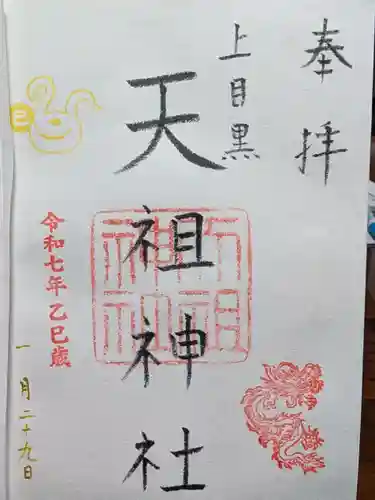 奉拝
上目黒
天祖神社
天祖神社
令和七年乙巳歳
一月二十九日
巳